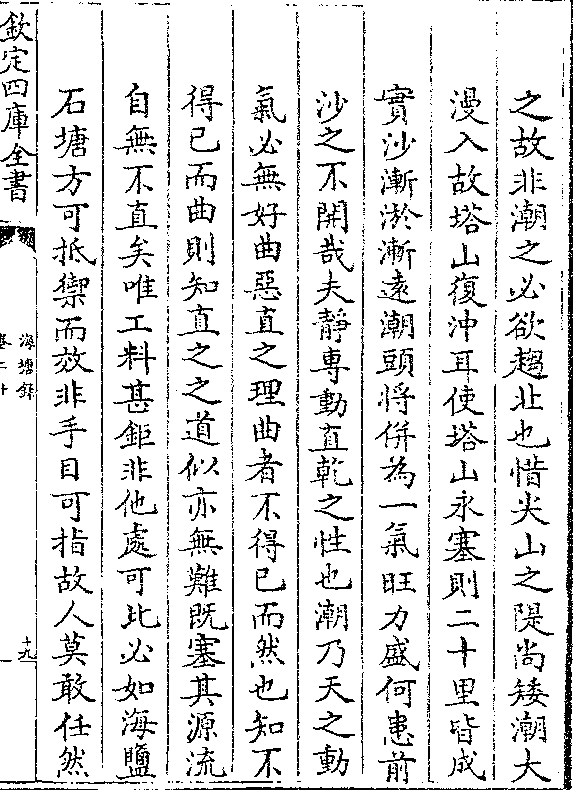 之故非潮之必欲趨北也惜尖山之隄尚矮潮大
漫入故塔山復沖耳使塔山永塞則二十里皆成
實沙漸淤漸遠潮頭將併為一氣旺力盛何患前
沙之不開哉夫靜專動直乾之性也潮乃天之動
氣必無好曲惡直之理曲者不得已而然也知不
得已而曲則知直之之道似亦無難既塞其源流
自無不直矣唯工料甚鉅非他處可比必如海鹽
石塘方可抵禦而效非手目可指故人莫敢任然
欽定四庫全書
海塘錄
卷二十
十九